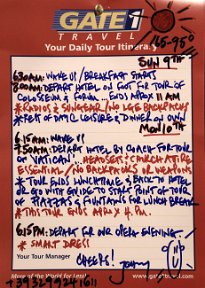 GATE 1
TRAVEL
65-95°
Your Daily Tour Itinerary
SUN 9TH
6:30AM: WAKE UP / BREAKFAST STARTS
8:00AM: DEPART HOTEL ON FOOT FOR TOUR OF
COLOSSEUM & FORUM... ENDS APPROX 11 AM
* RADIOS & SUNGEAR / NO LGE BACKPACKS
* REST OF DAY @ LEISURE, DINNER ON OWN
MON 10TH
6:15AM: WAKE UP
7:50AM: DEPART HOTEL BY COACH FOR TOUR
OF VATICAN... HEADSETS & CHURCH ATTIRE
ESSENTIAL / NO BACKPACKS OR WEAPONS
* TOUR ENDS LUNCHTIME & BACK TO HOTEL
OR GO WITH GUIDE TO START POINT OF TOUR
OF PIAZZAS & FUNTAINS FOR LUNCH BREAK
* THIS TOUR ENDS APPROX 4 PM.
6:15PM: DEPART FOR OUR OPERA EVENING -
* SMART DRESS
CHEERS!
Your Tour Manager
More of the World for Less!
www.gate1travel.com